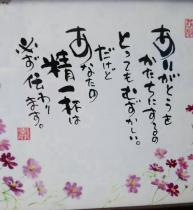 ありがとうを
かたちにするの
とってもむずかしい。
だけど
あなたの
精一杯は
必ず伝わります。